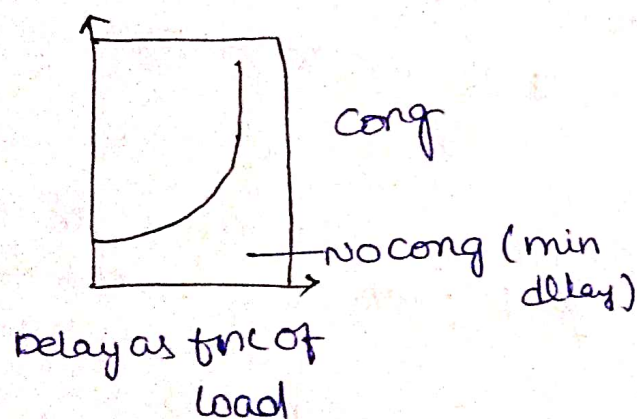 Cong
No cong (min
delay)
Delay as fnc of
load